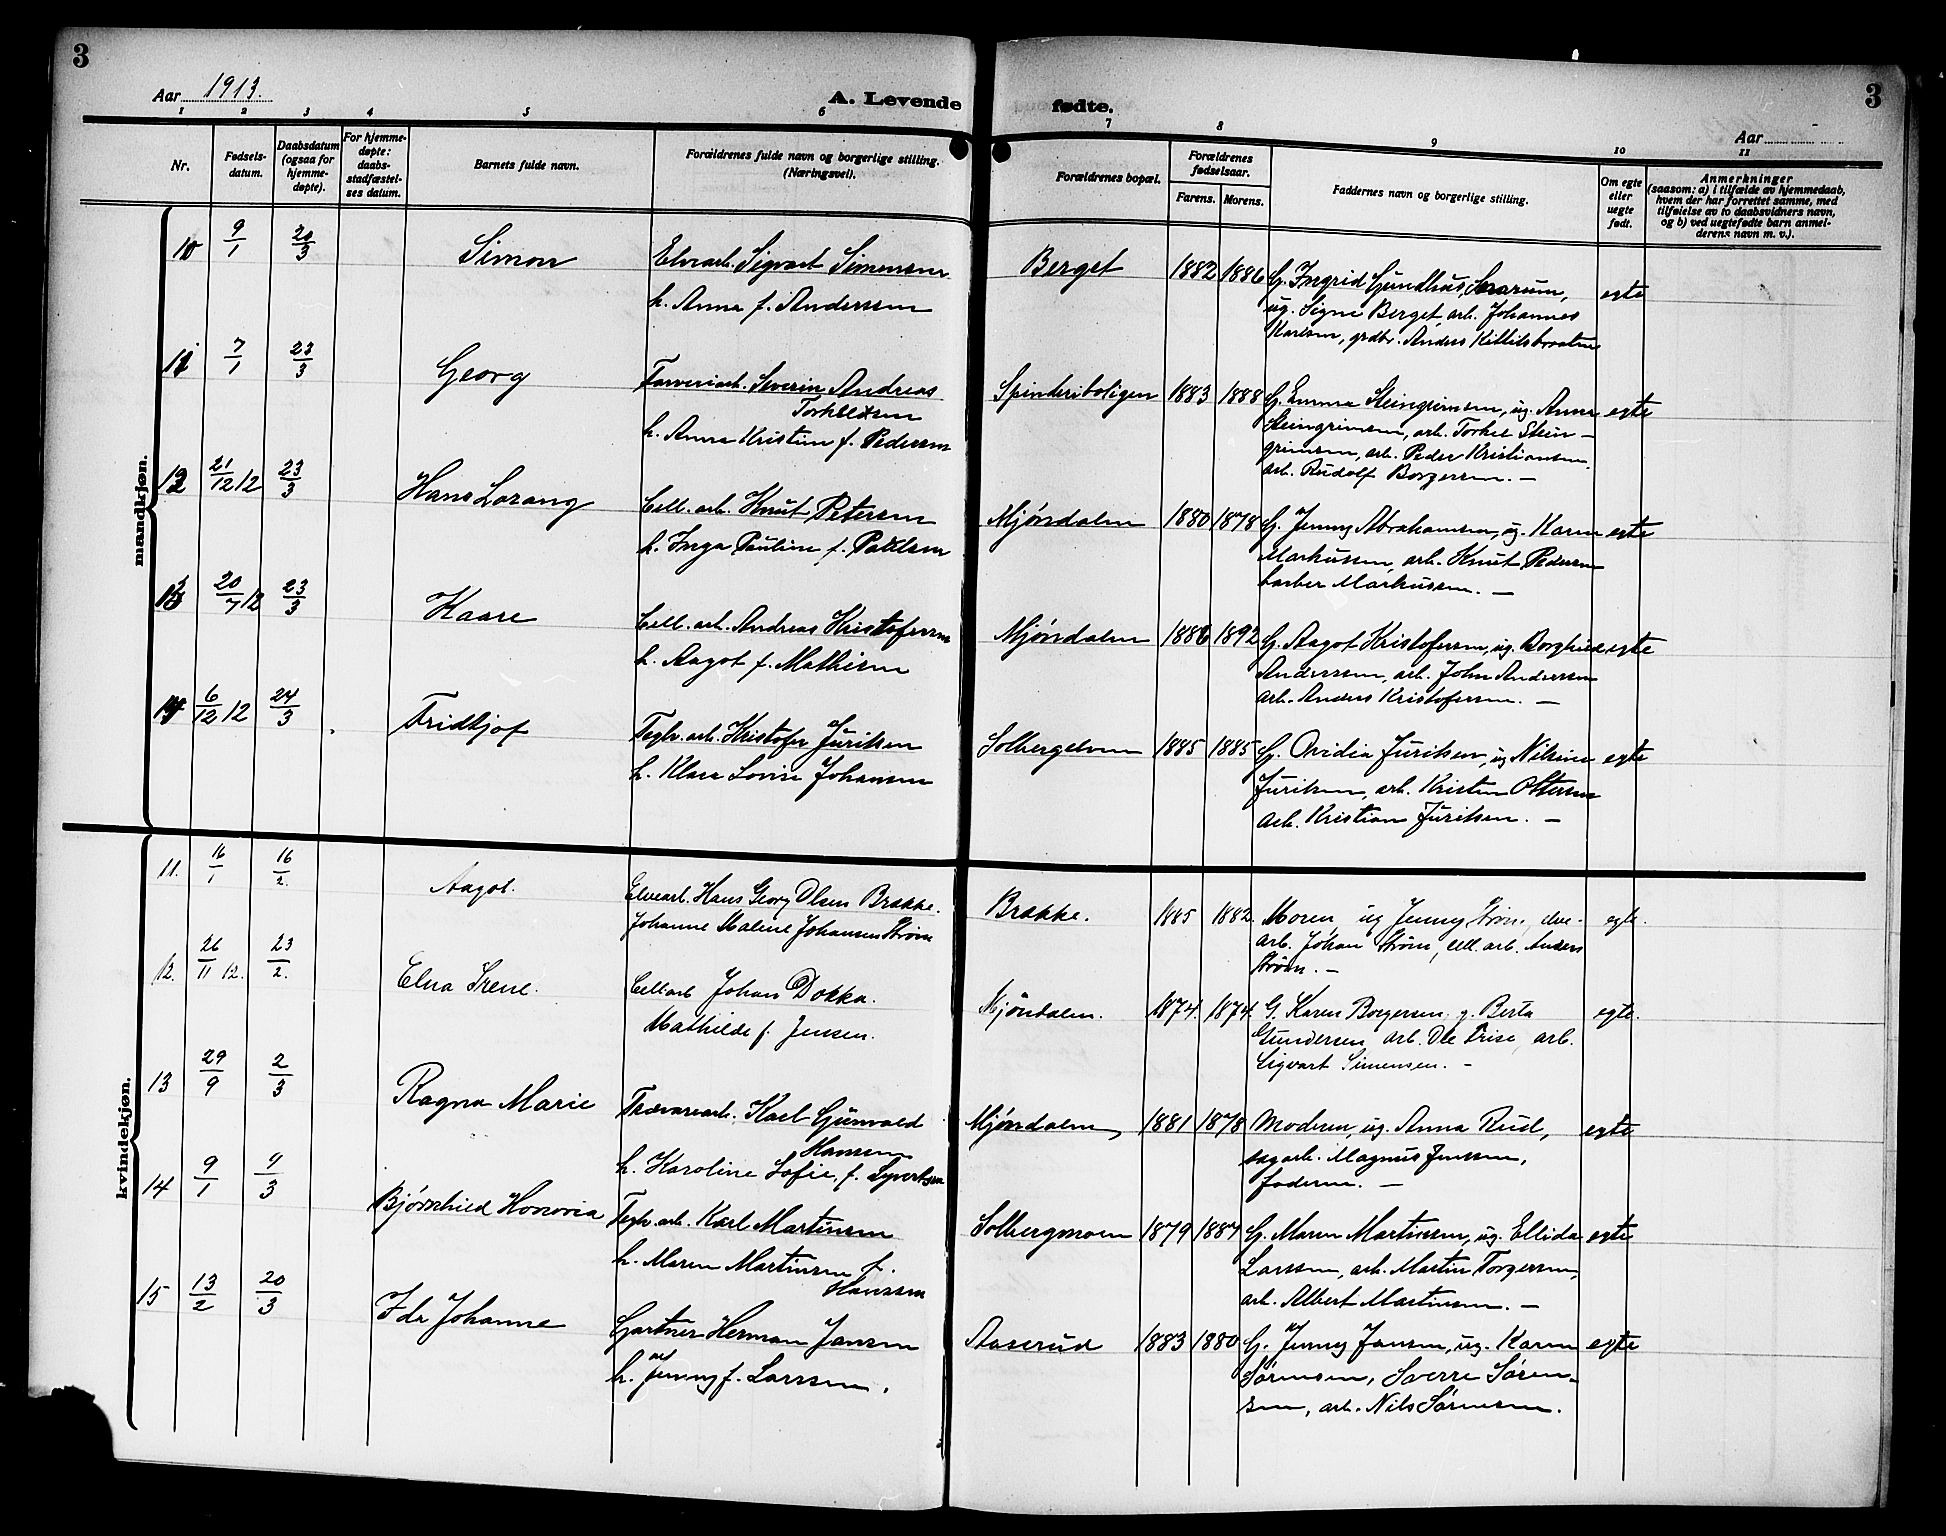 3
3
Aar 1913.
A. Levende fødte.
Aar
1 2 3 4 5 6 7 8 9 10 11
Nr.
Fødsels-
datum.
Daabsdatum
(ogsaa for
hjemme-
døpte).
For hjemme-
døpte:
daabs-
stadfæstel-
ses datum.
Barnets fulde navn.
Forældrenes fulde navn og borgerlige stilling.
(Næringsvei).
Forældrenes bopæl.
Forældrenes
fødselsaar.
Farens. Morens.
Faddernes navn og borgerlige stilling.
Om egte
eller
uegte
født.
Anmerkninger
(saasom: a) i tilfælde av hjemmedaab,
hvem der har forrettet samme, med
tilføielse av to daabsvidners navn,
og b) ved uegtefødte barn anmel-
derens navn m. v.).
mandkjøn.
10 9/1 20/3 Simon
Elvearb. Sigvart Simensen
h. Anna f. Anderssen
Berget 1882 1886
G. Ingrid Gundhus, Snarum,
ug. Signe Berget arb. Johannes
Karlsen, grdbr. Anders Killilsbraaten
egte
11 7/1 23/3 Georg
Farveriarb. Severin Andreas
Torkelsen
h. Anna Kristine f. Pedersen
Spinderiboligen 1883 1888
G. Emma Steingrimsen, ug. Anna
Steingrimsen, arb. Torkel Stein-
grimsen, arb. Peder Kristiansen,
arb. Rudolf Borgersen. —
egte
12 21/12 12 23/3 Hans Lorang
Cell. arb. Knut Petersen
h. Inga Pauline f. Paulsen
Mjøndalen 1880 1878
G. Jenny Abrahamsen, ug. Karen
Markussen, arb. Knut Pedersen
barber Markussen. —
egte
13 20/7 12 23/3 Kaare
Cell. arb. Andreas Kristofersen
h. Aagot f. Mathisen
Mjøndalen 1886 1892
G. Aagot Kristofersen, ug. Borghild
Anderssen, arb. John Anderssen
arb. Anders Kristofersen. —
egte
14 6/12 12 24/3 Fridtjof
Teglv. arb. Kristofer Juriksen
h. Klara Lovise Johansen
Solbergelven 1885 1885
G. Ovidia Juriksen, ug Nilsine
Juriksen, arb. Kristen Ottersen
arb. Kristian Juriksen. —
egte
kvindekjøn.
11. 16/1 16/2. Aagot.
Elvearb. Hans Georg Olsen Brække.
Johanne Malene Johansen Strøm
Brække. 1885 1882.
Moren, ug Jenny Strøm, elve-
arb. Johan Strøm, cell. arb. Anders
Strøm. —
egte.
12. 26/11 12. 23/2. Elna Irene.
Cellarb Johan Dokka.
Mathilde f. Jensen.
Mjøndalen. 1874. 1874.
G. Karen Borgersen, g. Berta
Gundersen, arb. Ole Frise, arb.
Sigvart Simensen. -
egte.
13 29/9 2/3 Ragna Marie
Trævarearb. Karl Gunvald
Hanssen
h. Karoline Sofie, f. Syvertsen
Mjøndalen 1881 1878
Moderen, ug. Anna Rud,
sagarb. Magnus Jenssen,
faderen. —
egte
14 9/1 9/3 Bjørnhild Honoria
Teglv. arb. Karl Martinsen
h. Maren Martinsen f.
Hanssen
Solbergmoen 1879 1887
G. Maren Martinsen, ug. Ellida
Larssen, arb. Martin Torgersen,
arb. Albert Martinsen. —
egte
15 13/2 20/3 Ida Johanne
Gartner Herman Jansen
h. Jenny f. Larssen.
Aaserud 1883 1880
G. Jenny Jansen, ug. Karen
Sørensen, Sverre Søren-
sen, arb. Nils Sørensen.
egte